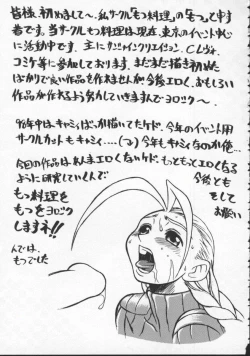 皆様、初めまして〜。私、サークル「もつ料理」の「もつ」と申す
者です。当サークルもつ料理は現在、東京のイベント中心に
活動中です。主にサンシャインクリエイション、C.レヴォ、
コミケ等に参加しております。まだまだ描き初めた
ばかりで良い作品を作れませんが今後エロく、おもしろい
作品が作れるよう努力していきますんでヨロシク〜
96年中はキャミィばっか描いてたケド、今年のイベント用
サークルカットもキャミィ…(つ)今年もキャミィなのか俺…
今回の作品はあんまエロくないケド、もっともっとエロくなる
ように研究していくんで
今後とも
もつ料理を
もつをヨロシク
しますネ!!
そして
お願い
んでは、
もつでした